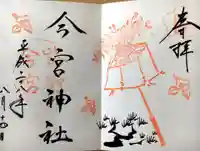 奉拝
今宮神社
平成二八年
八月十四日